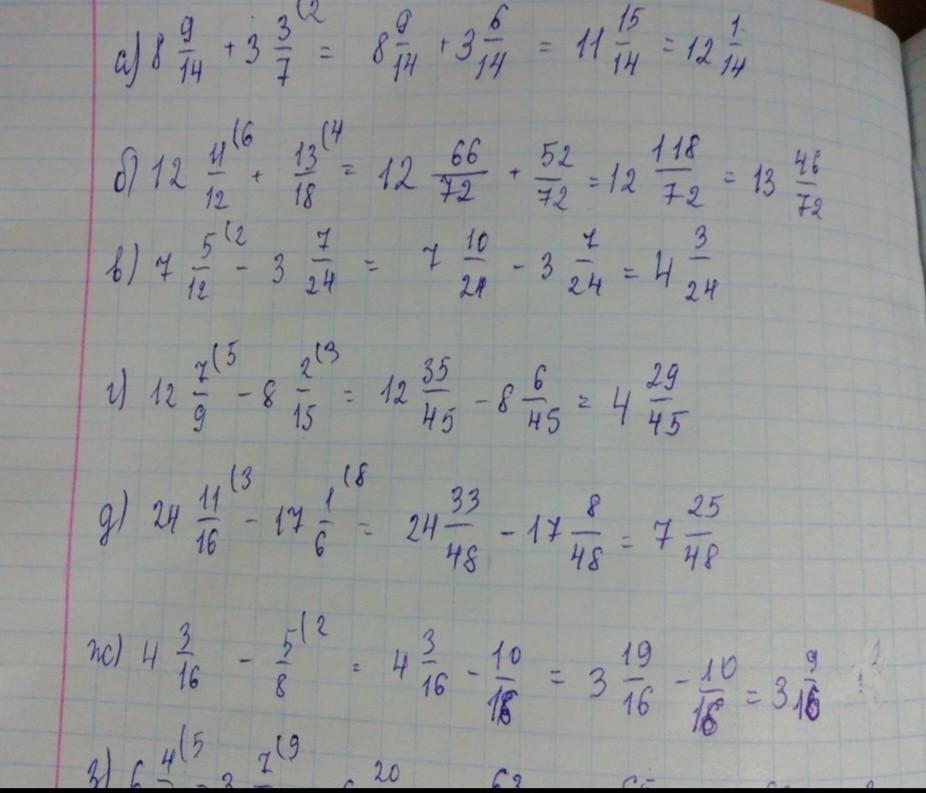 а) 8 9/14 + 3 3/7 (2 = 8 9/14 + 3 6/14 = 11 15/14 = 12 1/14
б) 12 11/12 (6 + 13/18 (4 = 12 66/72 + 52/72 = 12 118/72 = 13 46/72
в) 7 5/12 (2 - 3 7/24 = 7 10/24 - 3 7/24 = 4 3/24
г) 12 7/9 (5 - 8 2/15 (3 = 12 35/45 - 8 6/45 = 4 29/45
д) 24 11/16 (3 - 17 1/6 (8 = 24 33/48 - 17 8/48 = 7 25/48
ж) 4 3/16 - 5/8 (2 = 4 3/16 - 10/16 = 3 19/16 - 10/16 = 3 9/16
з) 6 4 (5 - 3 7 (9 20 63